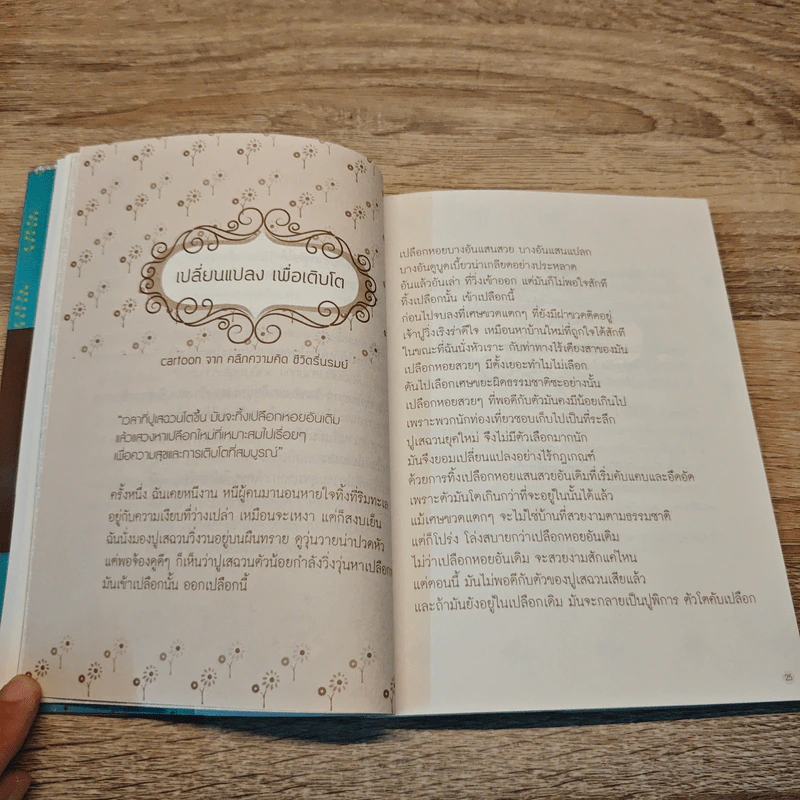 เปลี่ยนแปลง เพื่อเติบโต
cartoon จาก คลิกความคิด ชีวิตรื่นรมย์
"เวลาที่ปูเสฉวนโตขึ้น มันจะทิ้งเปลือกหอยอันเดิม
แล้วแสวงหาเปลือกใหม่ที่เหมาะสมไปเรื่อยๆ
เพื่อความสุขและการเติบโตที่สมบูรณ์"
ครั้งหนึ่ง ฉันเคยหนีงาน หนีผู้คนมานอนหายใจทิ้งที่ริมทะเล
อยู่กับความเงียบที่ว่างเปล่า เหมือนจะเหงา แต่ก็สงบเย็น
ฉันนั่งมองปูเสฉวนวิ่งวนอยู่บนผืนทราย ดูวุ่นวายน่าปวดหัว
แต่พอจ้องดูดีๆ ก็เห็นว่าปูเสฉวนตัวน้อยกำลังวิ่งวุ่นหาเปลือก
มันเข้าเปลือกนั้น ออกเปลือกนี้
เปลือกหอยบางอันแสนสวย บางอันแสนแปลก
บางอันดูบูดเบี้ยวน่าเกลียดอย่างประหลาด
อันแล้วอันเล่า ที่วิ่งเข้าออก แต่มันก็ไม่พอใจสักที
ทิ้งเปลือกนั้น เข้าเปลือกนี้
ก่อนไปจบลงที่เศษขวดแตกๆ ที่ยังมีฝาขวดติดอยู่
เจ้าปูวิ่งเริงร่าดีใจ เหมือนหาบ้านใหม่ที่ถูกใจได้สักที
ในขณะที่ฉันนั่งหัวเราะ กับท่าทางไร้เดียงสาของมัน
เปลือกหอยสวยๆ มีตั้งเยอะทำไมไม่เลือก
ดันไปเลือกเศษขยะผิดธรรมชาติซะอย่างนั้น
เปลือกหอยสวยๆ ที่พอดีกับตัวมันคงมีน้อยเกินไป
เพราะพวกนักท่องเที่ยวชอบเก็บไปเป็นที่ระลึก
ปูเสฉวนยุคใหม่ จึงไม่มีตัวเลือกมากนัก
มันจึงยอมเปลี่ยนแปลงอย่างไร้กฎเกณฑ์
ด้วยการทิ้งเปลือกหอยแสนสวยอันเดิมที่เริ่มคับแคบและอึดอัด
เพราะตัวมันโตเกินกว่าที่จะอยู่ในนั้นได้แล้ว
แม้เศษขวดแตกๆ จะไม่ใช่บ้านที่สวยงามตามธรรมชาติ
แต่ก็โปร่ง โล่งสบายกว่าเปลือกหอยอันเดิม
ไม่ว่าเปลือกหอยอันเดิม จะสวยงามสักแค่ไหน
แต่ตอนนี้ มันไม่พอดีกับตัวของปูเสฉวนเสียแล้ว
และถ้ามันยังอยู่ในเปลือกเดิม มันจะกลายเป็นปูพิการ ตัวโตคับเปลือก
25